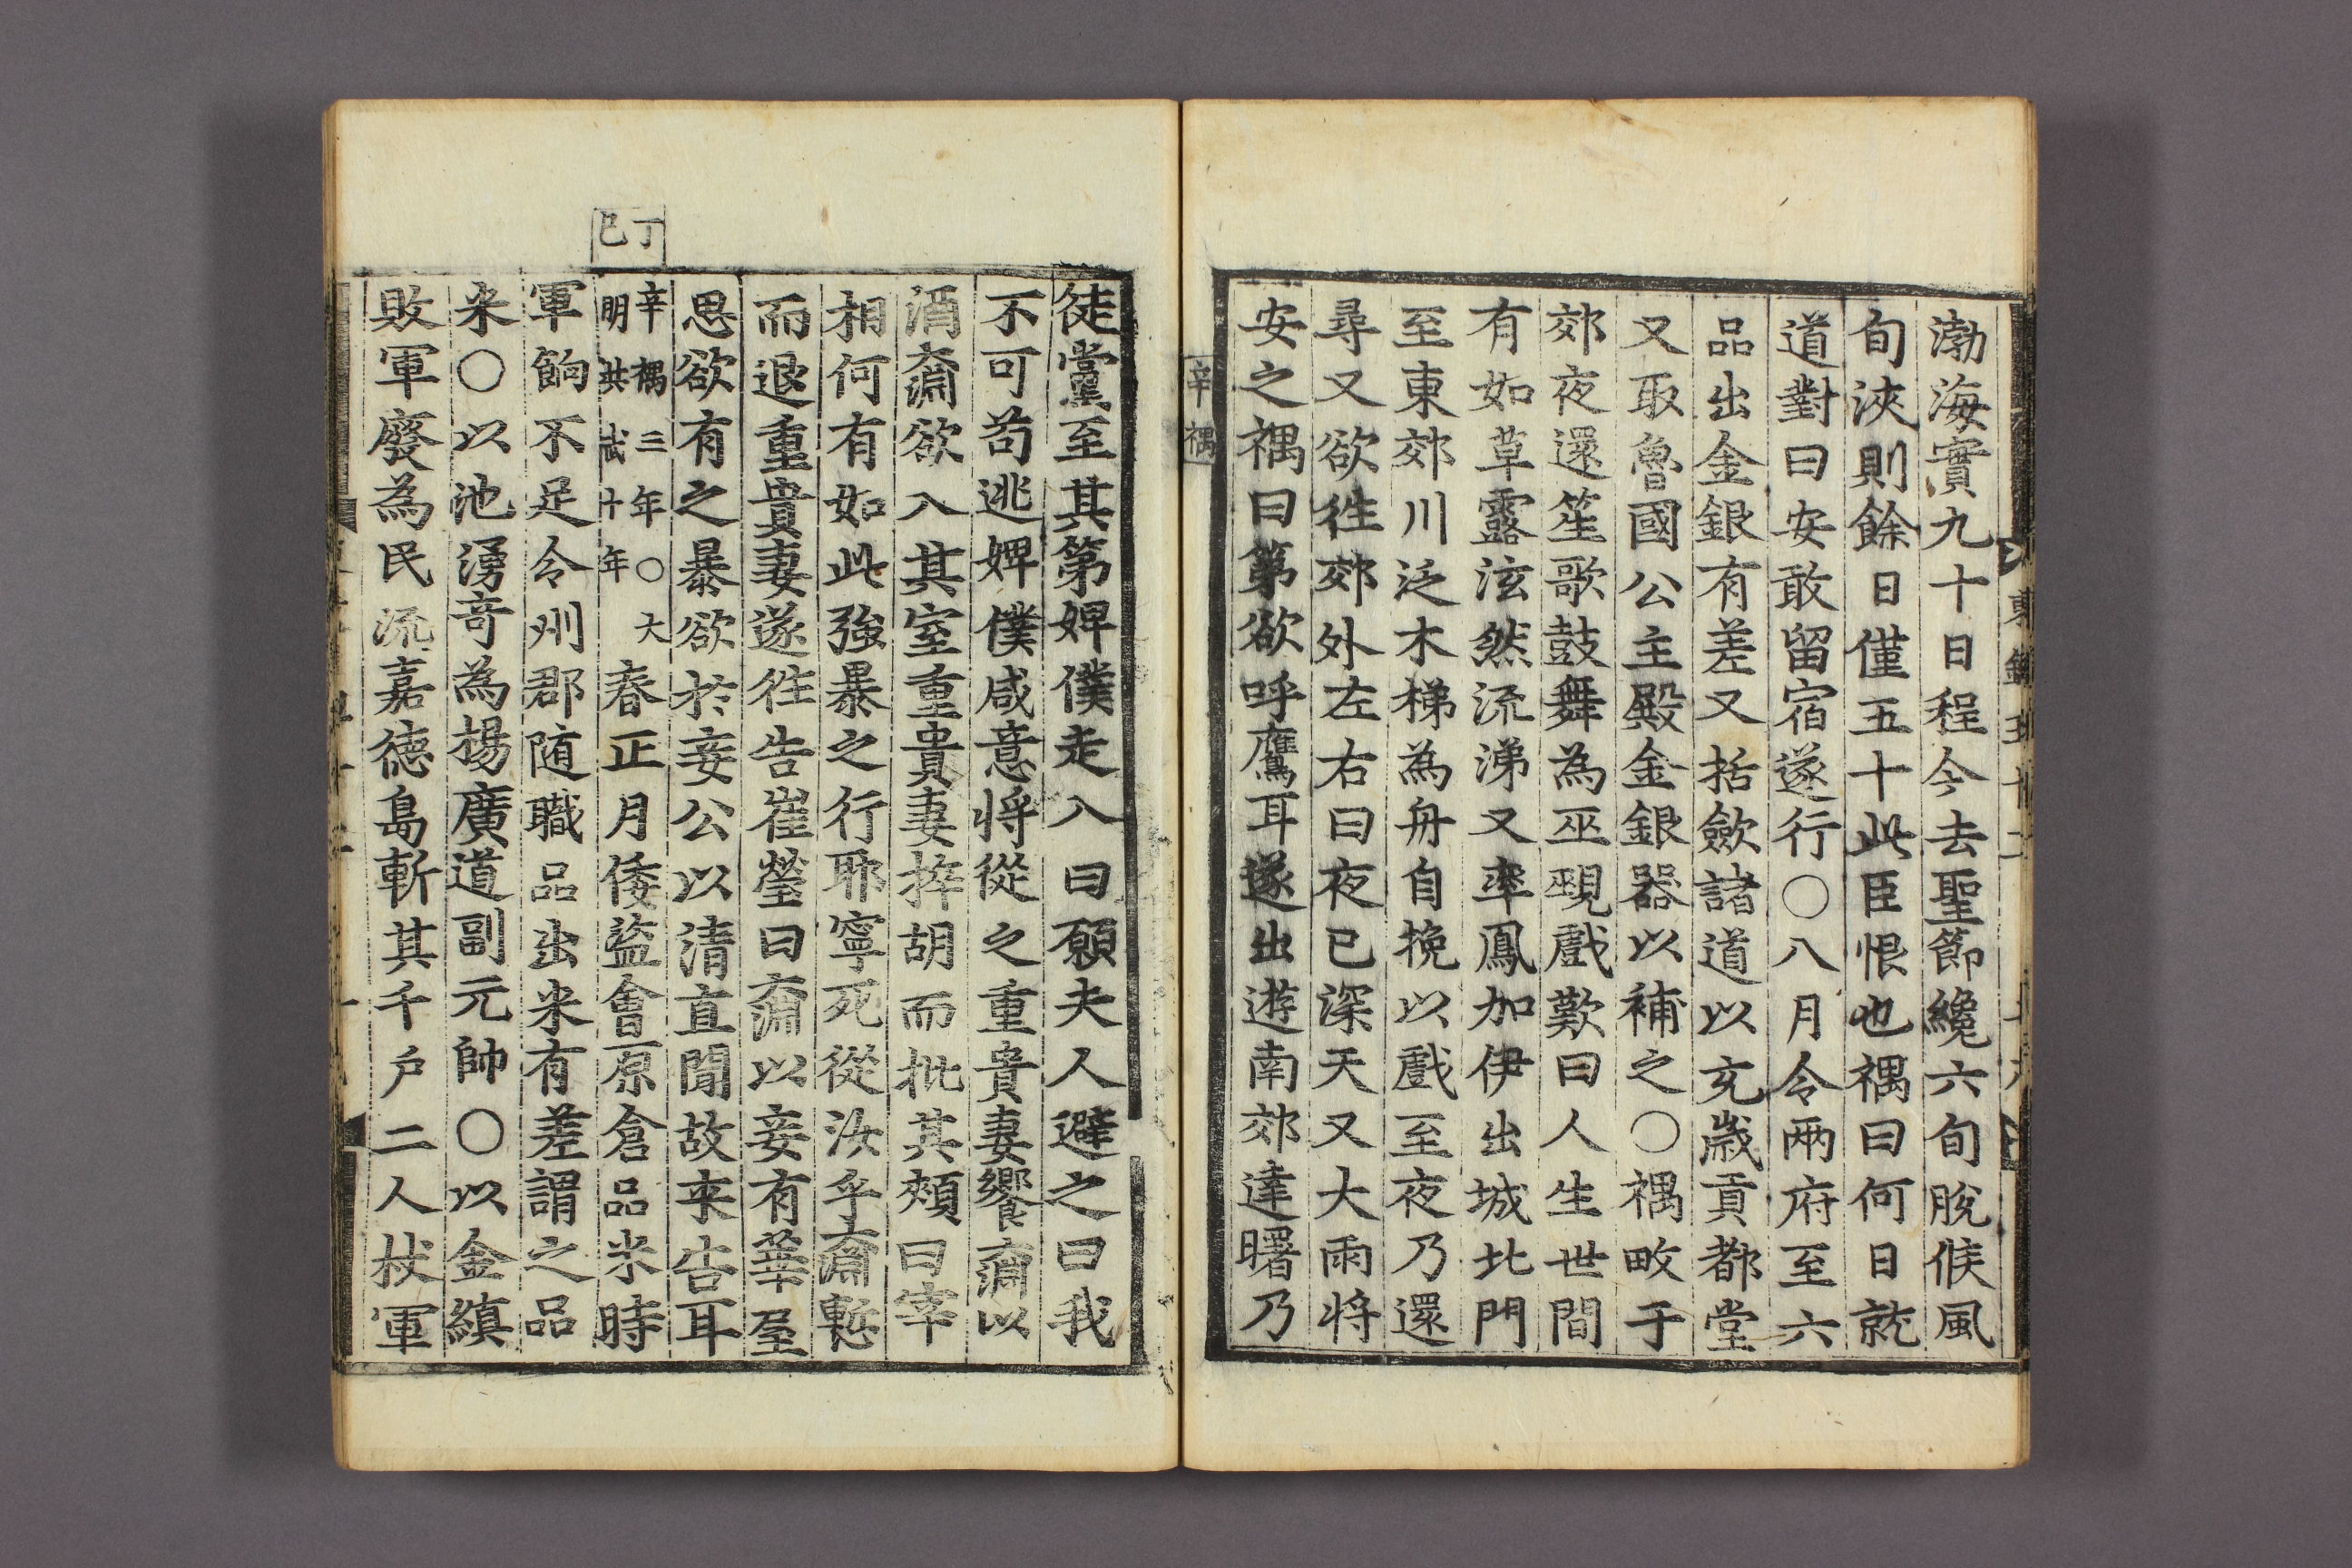 渤海實九十日程今去聖節纔六旬脫候風
旬浹則餘日僅五十此臣恨也禑曰何日就
道對曰安敢留宿遂行〇八月令兩府至六
品出金銀有差又括歛諸道以充歲貢都堂
又取魯國公主殿金銀器以補之〇禑畋于
郊夜還笙歌鼓舞為巫覡戲歎曰人生世間
有如草露泫然流涕又率鳳加伊出城北門
至東郊川泛木梯為舟自挽以戲至夜乃還
尋又欲徃郊外左右曰夜已深天又大雨將
安之禑曰第欲呼鷹耳遂出遊南郊達曙乃
辛禑
徒黨至其第婢僕走入曰願夫人避之曰我
不可苟逃婢僕咸意將從之重貴妻饗奫以
酒奫欲入其室重貴妻捽胡而批其頰曰宰
相何有如此強暴之行耶寧死從汝乎奫慙
而退重貴妻遂徃告崔瑩曰奫以妾有華屋
思欲有之暴欲於妾公以清直聞故来告耳
丁巳
辛禑三年〇大
明洪武十年
春正月倭盜會原倉品米時
軍餉不足令州郡随職品出米有差謂之品
米〇以池湧奇為楊廣道副元帥〇以金縝
敗軍廢為民流嘉德島斬其千戶二人杖軍